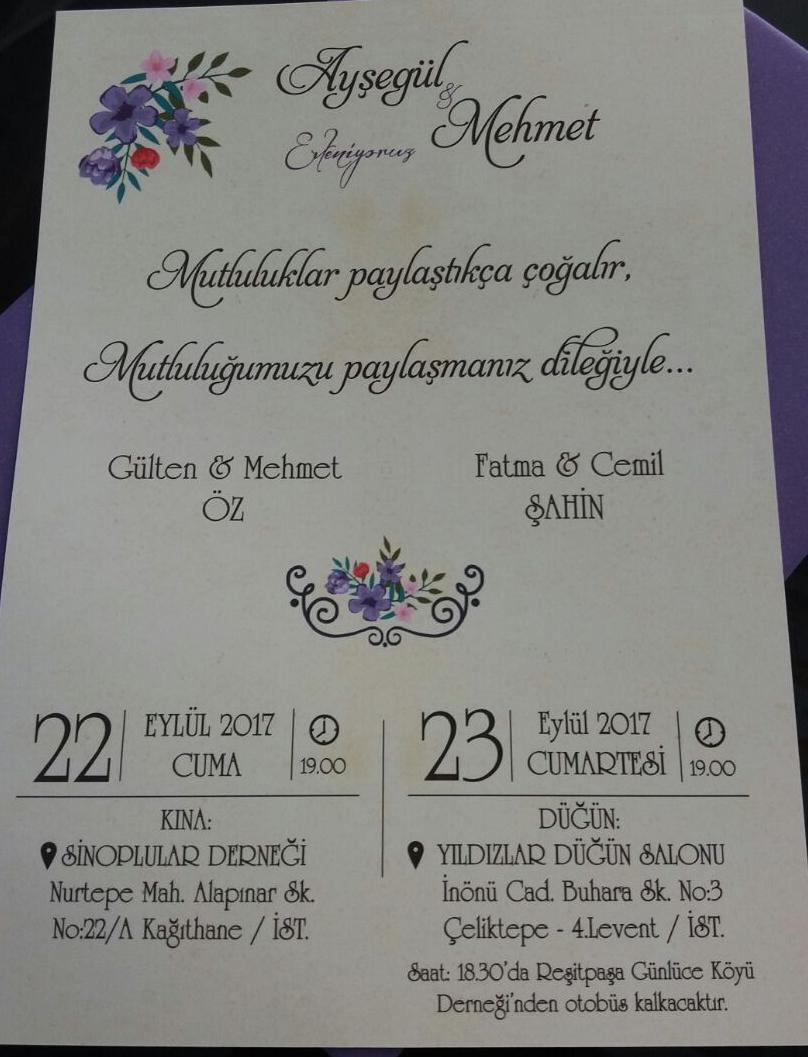 Ayşegül
&
Mehmet
Evleniyoruz
Mutluluklar paylaştıkça çoğalır,
Mutluluğumuzu paylaşmanız dileğiyle...
Gülten & Mehmet
ÖZ
Fatma & Cemil
ŞAHİN
22
EYLÜL 2017
CUMA
19.00
KINA:
SİNOPLULAR DERNEĞİ
Nurtepe Mah. Alapınar Sk.
No:22/A Kağıthane / İST.
23
Eylül 2017
CUMARTESİ
19.00
DÜĞÜN:
YILDIZLAR DÜĞÜN SALONU
İnönü Cad. Buhara Sk. No:3
Çeliktepe - 4.Levent / İST.
Saat: 18.30'da Reşitpaşa Günlüce Köyü
Derneği'nden otobüs kalkacaktır.